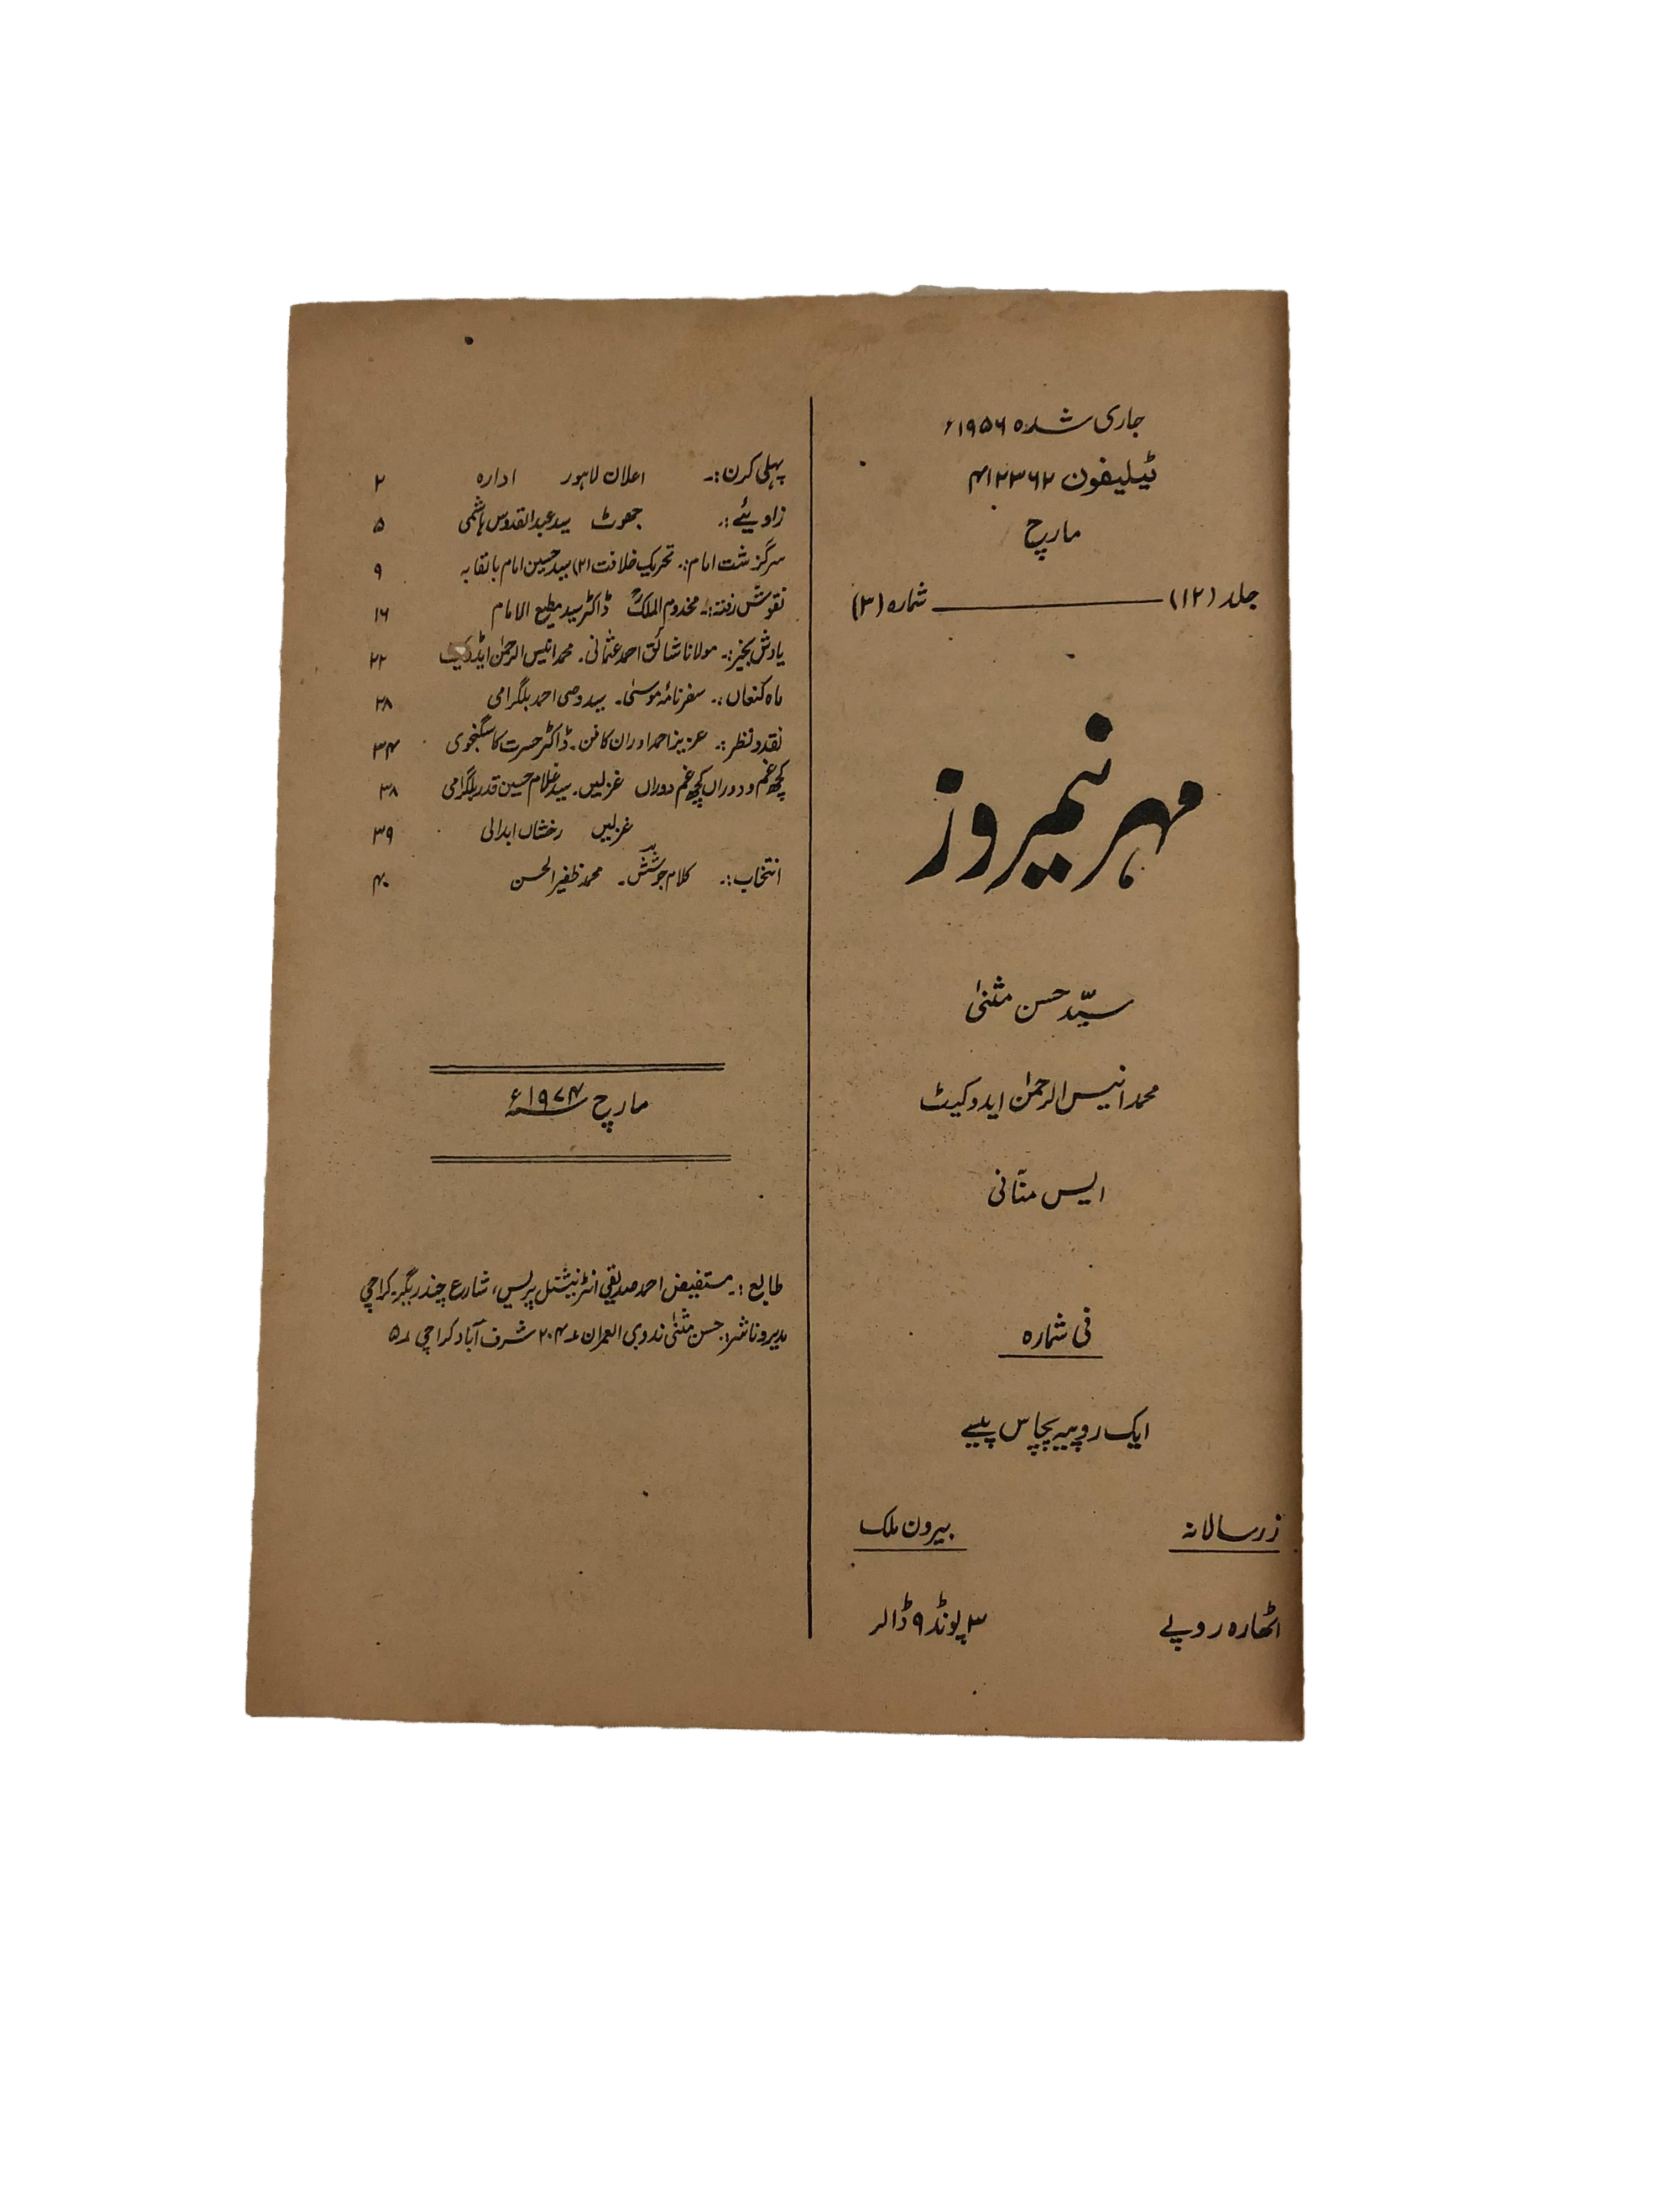 جاری شدہ ۱۹۵۶ء
ٹیلیفون ۴۱۲۳۶۲
مارچ
جلد (۱۲) ــــــــ شمارہ (۳)
مہر نیمروز
سیّد حسن مثنیٰ
محمد انیس الرحمٰن ایدوکیٹ
ایس منّانی
فی شمارہ
ایک روپیہ پچاس پیسے
زر سالانہ بیرون ملک
اٹھارہ روپے ۳ پونڈ ۹ ڈالر
پہلی کرن :۔ اعلان لاہور ادارہ ۲
زاویئے :۔ جھوٹ سید عبدالقدوس ہاشمی ۵
سرگزشت امام :۔ تحریک خلافت (۲) سید حسین امام بالقابہ ۹
نقوش رفتہ :۔ مخدوم الملکؒ ڈاکٹر سید مطیع الامام ۱۶
یادش بخیر :۔ مولانا شائق احمد عثمانی ۔ محمد انیس الرحمٰن ایڈوکیٹ ۲۲
ماہ کنعاں :۔ سفر نامۂ موسیٰ ۔ سید وصی احمد بلگرامی ۲۸
نقد و نظر :۔ عزیز احمد اور ان کا فن ۔ ڈاکٹر حسرت کاسگنجوی ۳۴
کچھ غم و دوراں کچھ غم دوراں غزلیں ۔ سید غلام حسین قدر بلگرامی ۳۸
غزلیں رخشاں ابدالی ۳۹
انتخاب :۔ کلام جوشش ۔ محمد ظفیر الحسن ۴۰
مارچ ۱۹۷۴ء
طابع :۔ مستفیض احمد صدیقی انٹرنیشنل پریس، شارع چندریگر ۔ کراچی
مدیر و ناشر :۔ حسن مثنیٰ ندوی العمران ۲۰۴ شرف آباد کراچی ۵